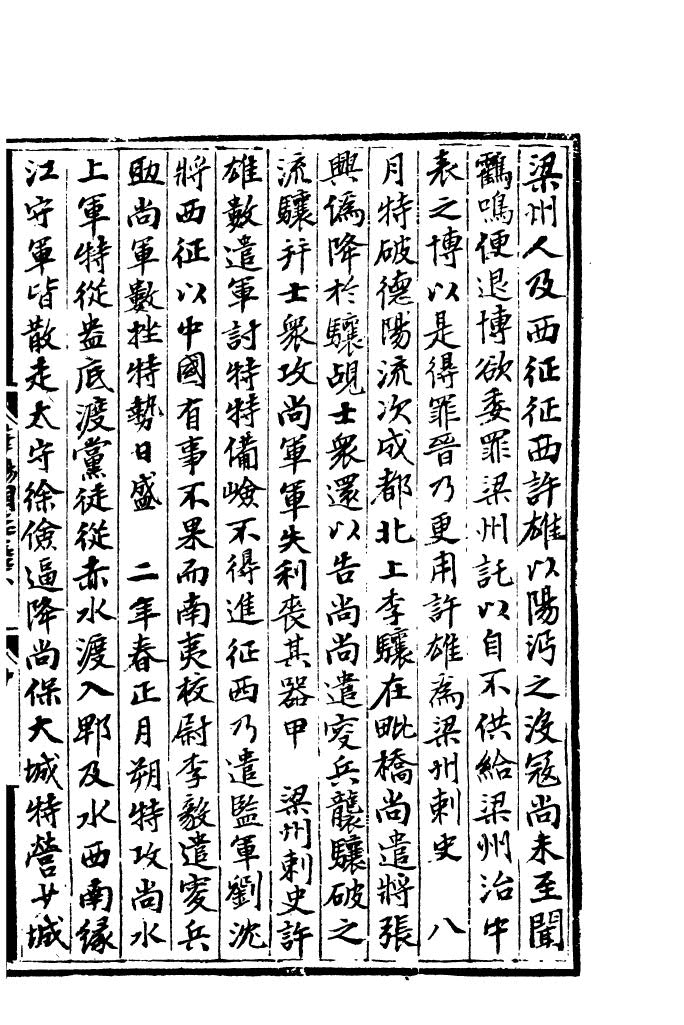 梁州人及西征征西許雄以陽沔之沒寇尚未至聞
鸛鳴便退博欲委罪梁州託以自不供給梁州治中
表之博以是得罪晉乃更用許雄為梁州刺史　八
月特破德陽流次成都北上李驤在毗橋尚遣將張
興偽降於驤覘士衆還以告尚尚遣叟兵襲驤破之
流驤并士衆攻尚軍軍失利喪其器甲　梁州刺史許
雄數遣軍討特特備嶮不得進征西乃遣監軍劉沈
將西征以中國有事不果而南夷校尉李毅遣叟兵
助尚軍數挫特勢日盛　二年春正月朔特攻尚水
上軍特從盎底渡黨徒從赤水渡入郫及水西南縁
江守軍皆散走太守徐儉逼降尚保大城特營少城